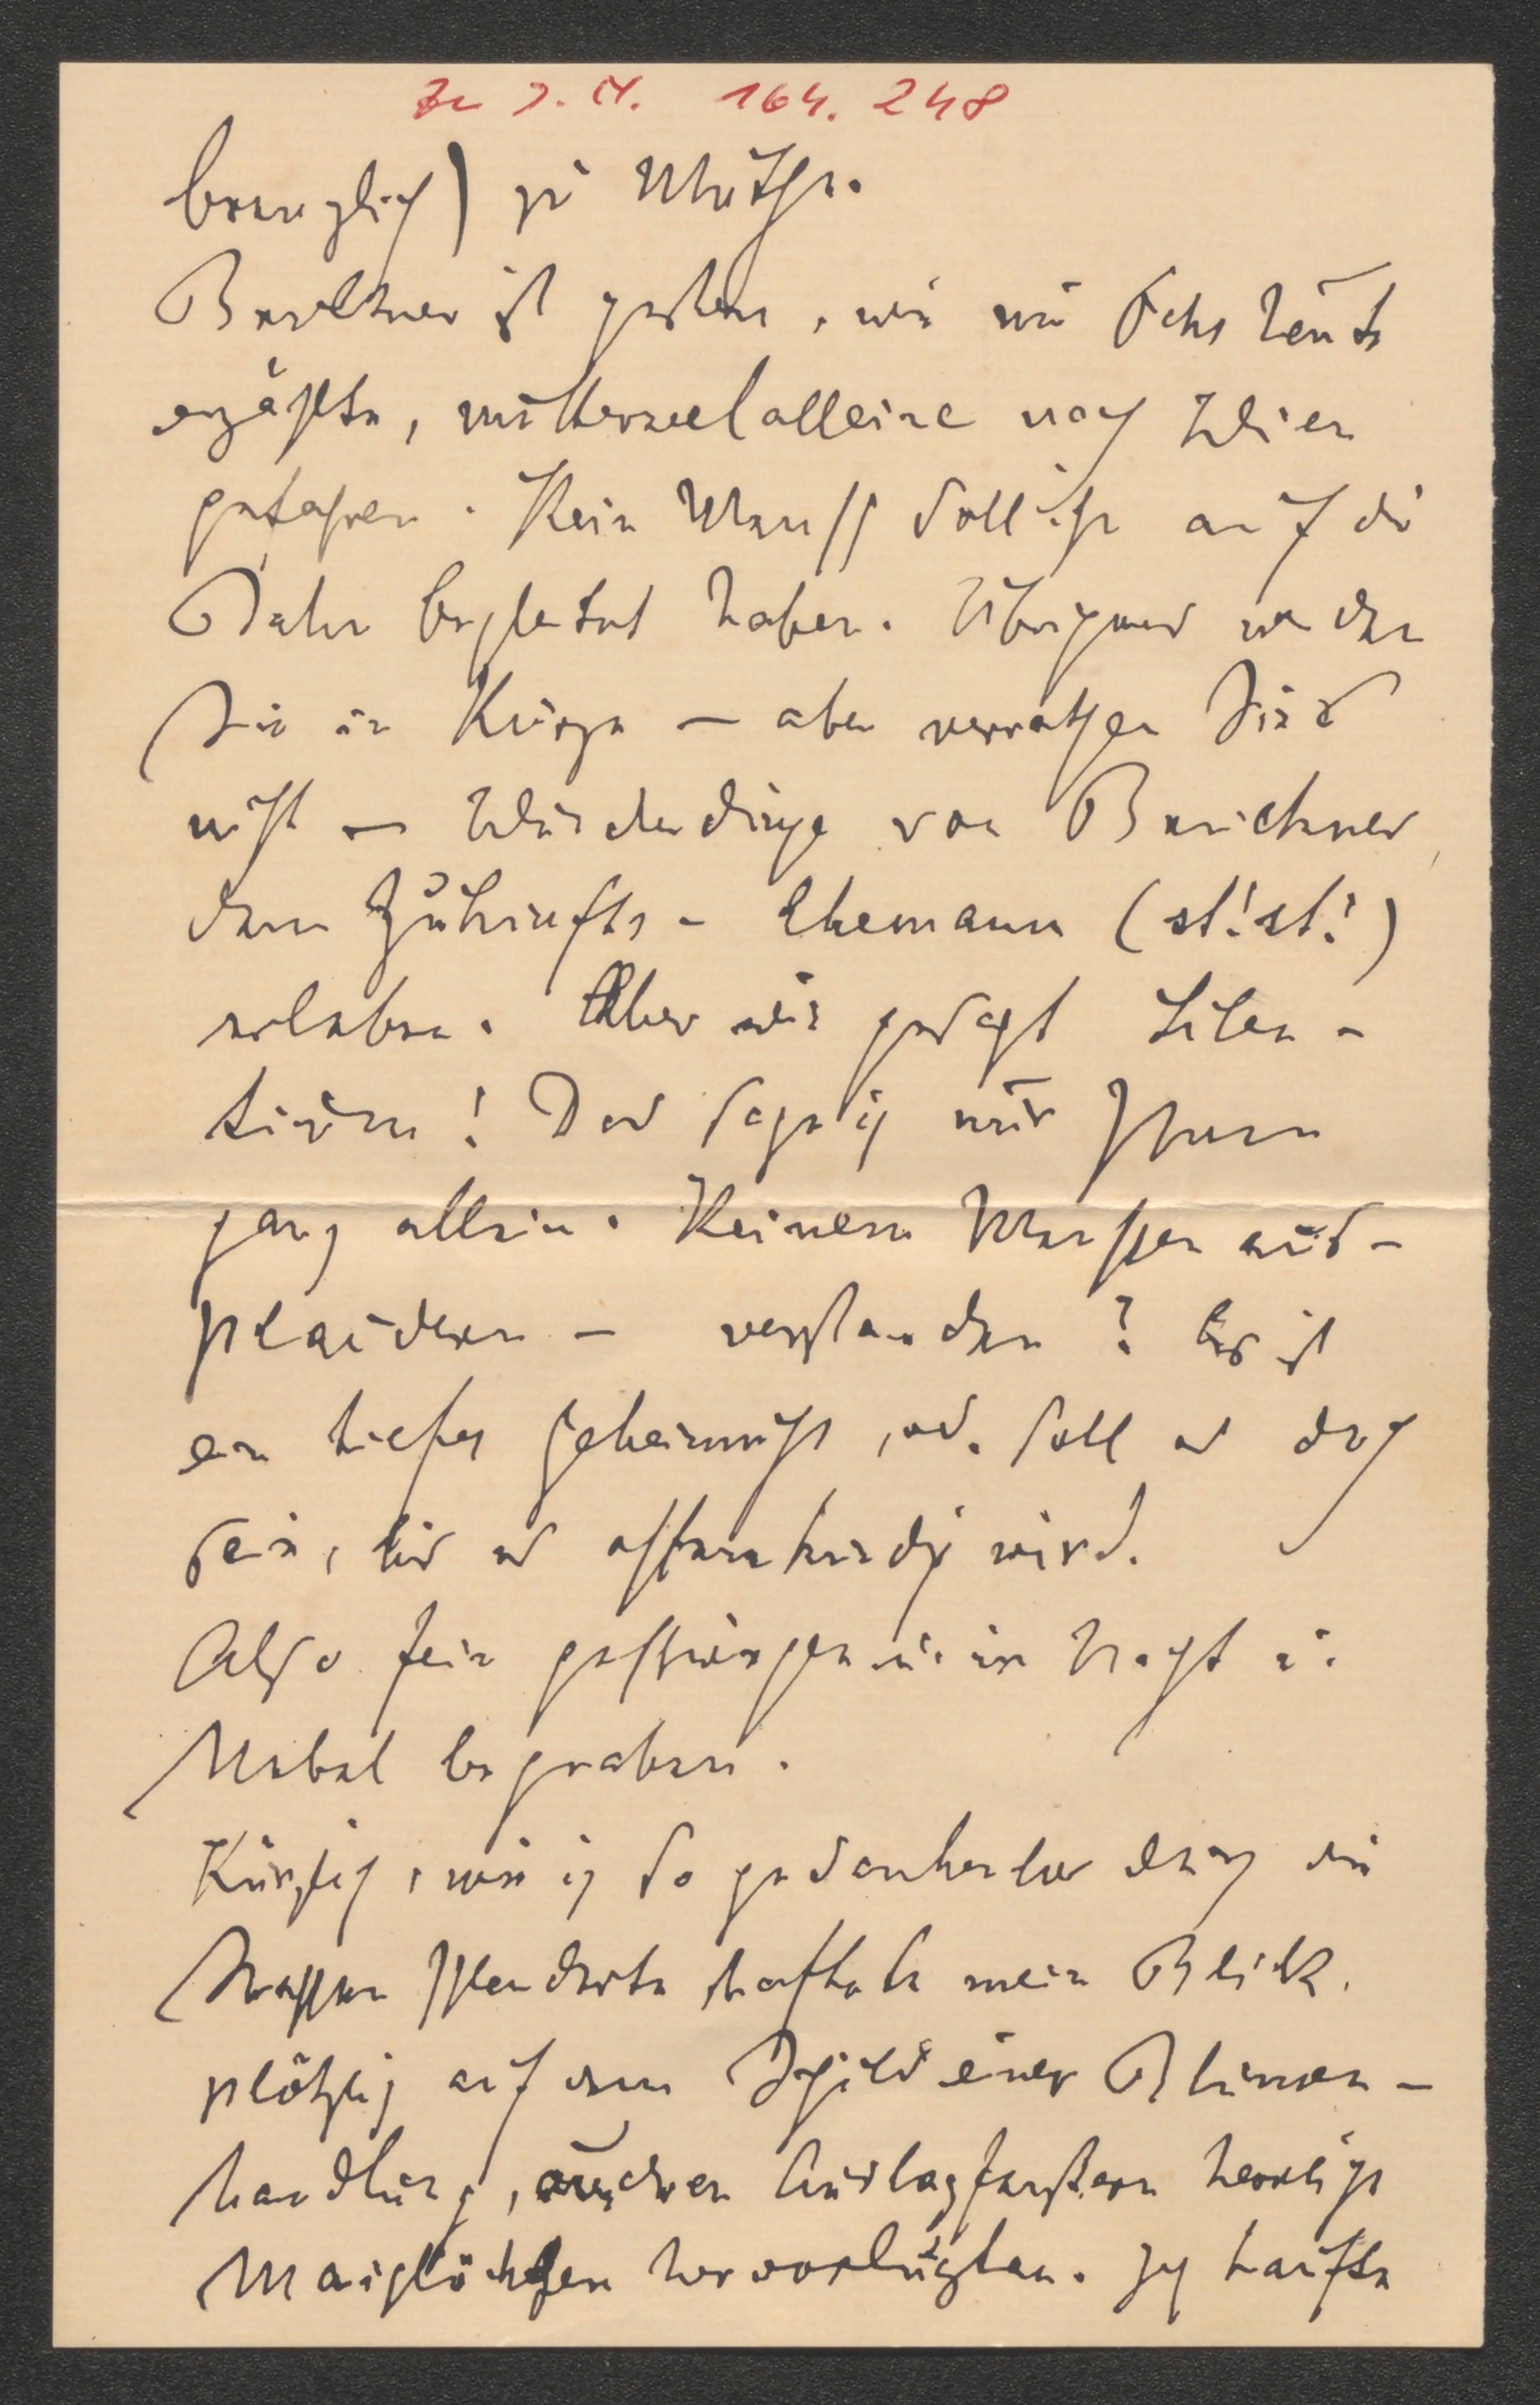 Zu I. N. 164.248
brenzlich) zu Muthe.
Bruckner ist gestern, wie mir Ochs heute
erzählte, mutterseelalleine nach Wien
gefahren. Kein Mensch soll ihn auf die
Bahn begleitet haben. Übrigens werden
Sie in Kürze – aber verrathen Sie's
nicht – Wunderdinge von Bruckner
dem Zukunfts- Ehemann (st! st!)
erleben. Aber wie gesagt Silen-
tium! Das sage ich nur Ihnen
ganz allein. Keinem Menschen aus-
plaudern – verstanden? Es ist
ein tiefes Geheimniß, od. soll es doch
sein, bis es offenkundig wird.
Also fein geschwiegen u. in Nacht u.
Nebel begraben.
Kürzlich, wie ich so gedankenlos durch die
Strassen schlenderte haftete mein Blick
plötzlich auf dem Schild einer Blumen-
handlung, aus deren Auslagfenstern herrliche
Maiglöckchen hervorlugten. Ich kaufte